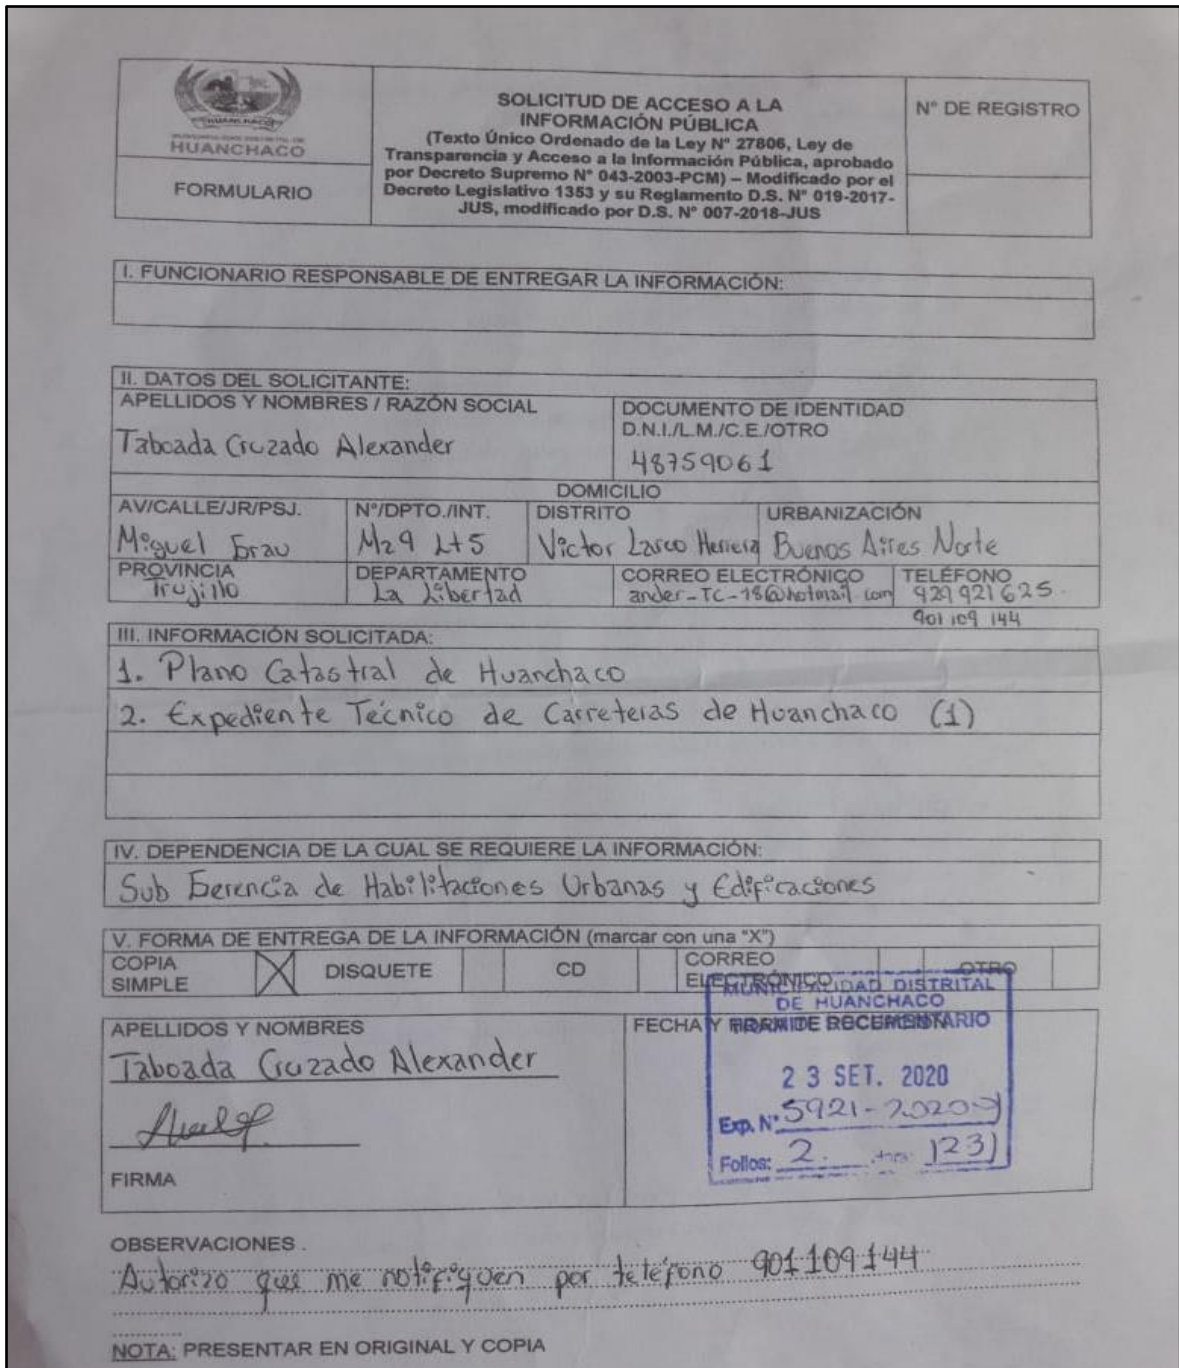 HUANCHACO
FORMULARIO
SOLICITUD DE ACCESO A LA
INFORMACIÓN PÚBLICA
(Texto Único Ordenado de la Ley N° 27806, Ley de
Transparencia y Acceso a la Información Pública, aprobado
por Decreto Supremo N° 043-2003-PCM) – Modificado por el
Decreto Legislativo 1353 y su Reglamento D.S. N° 019-2017-
JUS, modificado por D.S. N° 007-2018-JUS
N° DE REGISTRO
I. FUNCIONARIO RESPONSABLE DE ENTREGAR LA INFORMACIÓN:
II. DATOS DEL SOLICITANTE:
APELLIDOS Y NOMBRES / RAZÓN SOCIAL
Taboada Cruzado Alexander
DOCUMENTO DE IDENTIDAD
D.N.I./L.M./C.E./OTRO
48759061
DOMICILIO
AV/CALLE/JR/PSJ.
Miguel Grau
N°/DPTO./INT.
Mz9 Lt5
DISTRITO
Victor Larco Herrera
URBANIZACIÓN
Buenos Aires Norte
PROVINCIA
Trujillo
DEPARTAMENTO
La Libertad
CORREO ELECTRÓNICO
ander-TC-18@hotmail.com
TELÉFONO
929921625
901 109 144
III. INFORMACIÓN SOLICITADA:
1. Plano Catastral de Huanchaco
2. Expediente Técnico de Carreteras de Huanchaco (1)
IV. DEPENDENCIA DE LA CUAL SE REQUIERE LA INFORMACIÓN:
Sub Gerencia de Habilitaciones Urbanas y Edificaciones
V. FORMA DE ENTREGA DE LA INFORMACIÓN (marcar con una "X")
COPIA
SIMPLE
X
DISQUETE
CD
CORREO
ELECTRÓNICO
OTRO
APELLIDOS Y NOMBRES
Taboada Cruzado Alexander
FIRMA
FECHA Y
MUNICIPALIDAD DISTRITAL
DE HUANCHACO
TRAMITE DOCUMENTARIO
23 SET. 2020
Exp. N° 5921-2020
Folios: 2 Hora:
OBSERVACIONES.
Autorizo que me notifiquen por teléfono 901109144
NOTA: PRESENTAR EN ORIGINAL Y COPIA